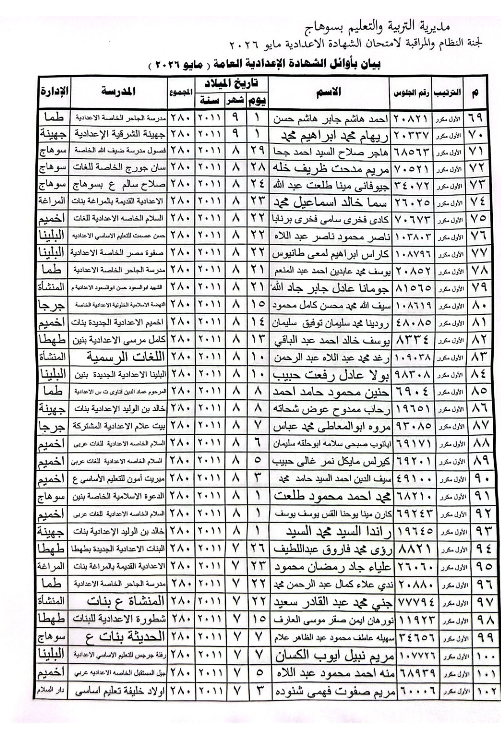 مديرية التربية والتعليم بسوهاج
لجنة النظام والمراقبة لامتحان الشهادة الاعدادية مايو ٢٠٢٦
بيان بأوائل الشهادة الإعدادية العامة ( مايو ٢٠٢٦ )
م الترتيب رقم الجلوس الاسم تاريخ الميلاد المجموع المدرسة الإدارة
يوم شهر سنة
٦٩ الأول مكرر ٢٠٨٢١ احمد هاشم جابر هاشم حسن ١ ٩ ٢٠١١ ٢٨٠ مدرسة الجاحر الخاصة الاعدادية طما
٧٠ الأول مكرر ٢٠٣٣٧ ريهام محمد ابراهيم محمد ١ ٩ ٢٠١١ ٢٨٠ جهينة الشرقية الإعدادية جهينة
٧١ الأول مكرر ٦٨٥٦٣ هاجر صلاح السيد احمد جحا ٢٩ ٨ ٢٠١١ ٢٨٠ فصول مدرسة ضيف الله الخاصة سوهاج
٧٢ الأول مكرر ٧٠٥٢١ مريم مدحت ظريف خله ٢٨ ٨ ٢٠١١ ٢٨٠ سان جورج الخاصة للغات سوهاج
٧٣ الأول مكرر ٣٤٠٧٢ جيوفانى مينا طلعت عبد الله ٢٤ ٨ ٢٠١١ ٢٨٠ صلاح سالم ع بسوهاج سوهاج
٧٤ الأول مكرر ٢٦٠٢٥ سما خالد اسماعيل محمد ٢٣ ٨ ٢٠١١ ٢٨٠ الاعدادية القديمة بالمراغة بنات المراغة
٧٥ الأول مكرر ٧٠٦٧٣ كادى فخرى سامى فخرى برنابا ٢٢ ٨ ٢٠١١ ٢٨٠ السلام الخاصه الاعدادية للغات اخميم
٧٦ الأول مكرر ١٠٣٨٠٣ ناصر محمود ناصر عبد اللاه ٢٢ ٨ ٢٠١١ ٢٨٠ حسن عصمت للتعليم الاساسي الاعدادية البلينا
٧٧ الأول مكرر ١٠٨٧٩٦ كاراس ابراهيم لمعى طانيوس ٢٢ ٨ ٢٠١١ ٢٨٠ صفوة مصر الخاصة الاعدادية البلينا
٧٨ الأول مكرر ٢٠٨٥٢ يوسف محمد عابدين احمد عبد المنعم ٢١ ٨ ٢٠١١ ٢٨٠ مدرسة الجاحر الخاصة الاعدادية طما
٧٩ الأول مكرر ٨١٥٦٥ جومانا عادل جابر جاد الله ٢١ ٨ ٢٠١١ ٢٨٠ المنشأة
٨٠ الأول مكرر ١٠٨٦١٩ سيف الله محمد محسن كامل محمود ١٥ ٨ ٢٠١١ ٢٨٠ جرجا
٨١ الأول مكرر ٤٨٠٨٥ رودينا محمد سليمان توفيق سليمان ١٤ ٨ ٢٠١١ ٢٨٠ اخميم الاعدادية الجديدة بنات اخميم
٨٢ الأول مكرر ٨٣٣٤ يوسف خالد احمد عبد الباقي ١٣ ٨ ٢٠١١ ٢٨٠ كامل مرسى الاعدادية بنين طهطا
٨٣ الأول مكرر ١٠٩٠٣٨ رغد محمد عبد اللاه عبد الرحمن ١٠ ٨ ٢٠١١ ٢٨٠ اللغات الرسمية المنشأة
٨٤ الأول مكرر ٩٨٣٠٨ بولا عادل رفعت حبيب ١٠ ٨ ٢٠١١ ٢٨٠ البلينا الاعدادية الجديدة بنين البلينا
٨٥ الأول مكرر ٦٩٠٤ حنين محمود حامد احمد ٨ ٨ ٢٠١١ ٢٨٠ طما
٨٦ الأول مكرر ١٩٦٥١ رحاب ممدوح عوض شحاته ٨ ٨ ٢٠١١ ٢٨٠ خالد بن الوليد الإعدادية بنات جهينة
٨٧ الأول مكرر ٩٣٠٨٥ مروه ابوالمعاطى محمد عباس ٧ ٨ ٢٠١١ ٢٨٠ بيت علام الاعدادية المشتركة جرجا
٨٨ الأول مكرر ٦٩١٧١ صبحى سلامه ابوحلقه سليمان ٦ ٨ ٢٠١١ ٢٨٠ السلام الخاصه الاعدادية للغات عربى اخميم
٨٩ الأول مكرر ٦٩٢٠١ كيرلس مايكل نمر غالى حبيب ٥ ٨ ٢٠١١ ٢٨٠ السلام الخاصه الاعدادية للغات عربى اخميم
٩٠ الأول مكرر ٤٩١٠٠ سيف الدين احمد السيد حامد محمد ٣ ٨ ٢٠١١ ٢٨٠ ميريت أمون للتعليم الأساسي ع اخميم
٩١ الأول مكرر ٦٨٢١٠ محمد احمد محمود طلعت ١ ٨ ٢٠١١ ٢٨٠ الدعوة الاسلامية الخاصة بنين سوهاج
٩٢ الأول مكرر ٦٩٢٤٣ كارن مينا يوحنا القس يوسف يوسف ١ ٨ ٢٠١١ ٢٨٠ السلام الخاصه الاعدادية للغات عربى اخميم
٩٣ الأول مكرر ١٩٦٤٥ راندا السيد محمد السيد ١ ٨ ٢٠١١ ٢٨٠ خالد بن الوليد الإعدادية بنات جهينة
٩٤ الأول مكرر ٨٨٢١ رؤى محمد فاروق عبداللطيف ٢٦ ٧ ٢٠١١ ٢٨٠ البنات الاعدادية الجديدة بطهطا طهطا
٩٥ الأول مكرر ٢٦٠٦٠ علياء جاد رمضان محمود ٢٣ ٧ ٢٠١١ ٢٨٠ الاعدادية القديمة بالمراغة بنات المراغة
٩٦ الأول مكرر ٢٠٨٨٠ ندي علاء كمال عبد الرحمن محمد ٢٢ ٧ ٢٠١١ ٢٨٠ مدرسة الجاحر الخاصة الاعدادية طما
٩٧ الأول مكرر ٧٧٧٩٤ جني محمد عبد القادر سعيد ٢٢ ٧ ٢٠١١ ٢٨٠ المنشاة ع بنات المنشأة
٩٨ الأول مكرر ١١٩٢٣ نورهان ايمن صقر موسى العارف ١٥ ٧ ٢٠١١ ٢٨٠ شطورة الاعدادية للبنات طهطا
٩٩ الأول مكرر ٣٤٦٥٦ سهيله عاطف محمود عبد الظاهر علام ٧ ٧ ٢٠١١ ٢٨٠ الحديثة بنات ع سوهاج
١٠٠ الأول مكرر ١٠٧٧٢٦ مريم نبيل ايوب الكسان ٧ ٧ ٢٠١١ ٢٨٠ رفلة جرجس للتعليم الاساسي الاعدادية البلينا
١٠١ الأول مكرر ٦٨٩٣٩ منه احمد محمود عبد اللاه ٥ ٧ ٢٠١١ ٢٨٠ جيل المستقبل الخاصه الاعداديه عربى اخميم
١٠٢ الأول مكرر ٦٠٠٠٦ مريم صفوت فهمى شنوده ٣ ٧ ٢٠١١ ٢٨٠ اولاد خليفة تعليم اساسى دار السلام